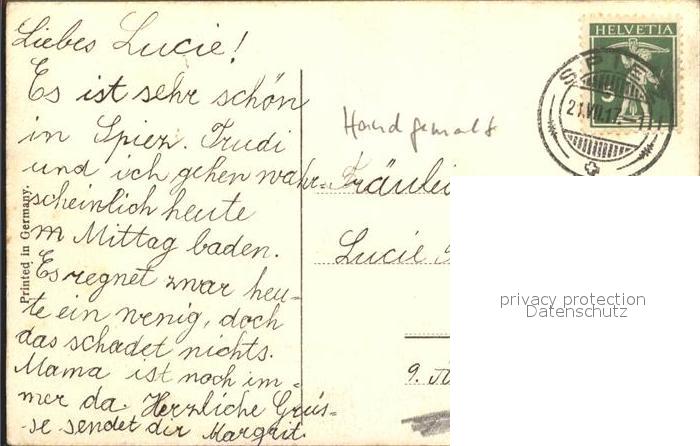 Liebes Lucie!
Es ist sehr schön
in Spiez. Trudi
und ich gehen wahr-
scheinlich heute
m Mittag baden.
Es regnet zwar heu-
te ein wenig, doch
das schadet nichts.
Mama ist noch im-
mer da. Herzliche Grüs-
se sendet dir Margrit.
Printed in Germany.
Handgemalt
Fräulei
Lucie
9.
HELVETIA
5
SPIEZ
21.VII.17
privacy protection
Datenschutz